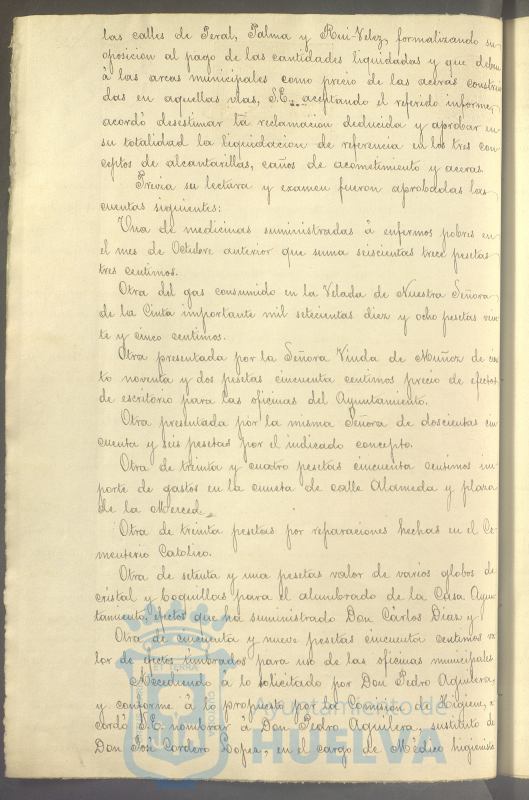 las calles de Peral, Palma y Rui-Velez, formalizando su
oposicion al pago de las cantidades liquidadas y que deben
á las arcas municipales como precio de las aceras construi
das en aquellas vias, S.E., aceptando el referido informe,
acordó desestimar la reclamacion deducida y aprobar en
su totalidad la liquidacion de referencia en los tres con
ceptos de alcantarillas, caños de acometimiento y aceras.
Previa su lectura y examen fueron aprobadas las
cuentas siguientes:
Una de medicinas suministradas á enfermos pobres en
el mes de Octubre anterior que suma seiscientas trece pesetas
tres centimos.
Otra del gas consumido en la Velada de Nuestra Señora
de la Cinta importante mil setecientas diez y ocho pesetas vein
te y cinco centimos.
Otra presentada por la Señora Viuda de Muñoz de cien
to noventa y dos pesetas cincuenta centimos precio de efectos
de escritorio para las oficinas del Ayuntamiento.
Otra presentada por la misma Señora de doscientas cin
cuenta y seis pesetas por el indicado concepto.
Otra de treinta y cuatro pesetas cincuenta centimos im
porte de gastos en la cuneta de calle Alameda y plaza
de la Merced.
Otra de treinta pesetas por reparaciones hechas en el Ce
menterio Catolico.
Otra de setenta y una pesetas valor de varios globos de
cristal y boquillas para el alumbrado de la Casa Ayun
tamiento, efectos que ha suministrado Don Cárlos Diaz y
Otra de cincuenta y nueve pesetas cincuenta centimos va
lor de efectos timbrados para uso de las oficinas municipales
Accediendo á lo solicitado por Don Pedro Aguilera,
y conforme á lo propuesto por la Comision de Higiene, a
cordó S.E. nombrar á Don Pedro Aguilera, sustituto de
Don José Cordero Lopez, en el cargo de Médico higienista
Ayuntamiento de
HUELVA